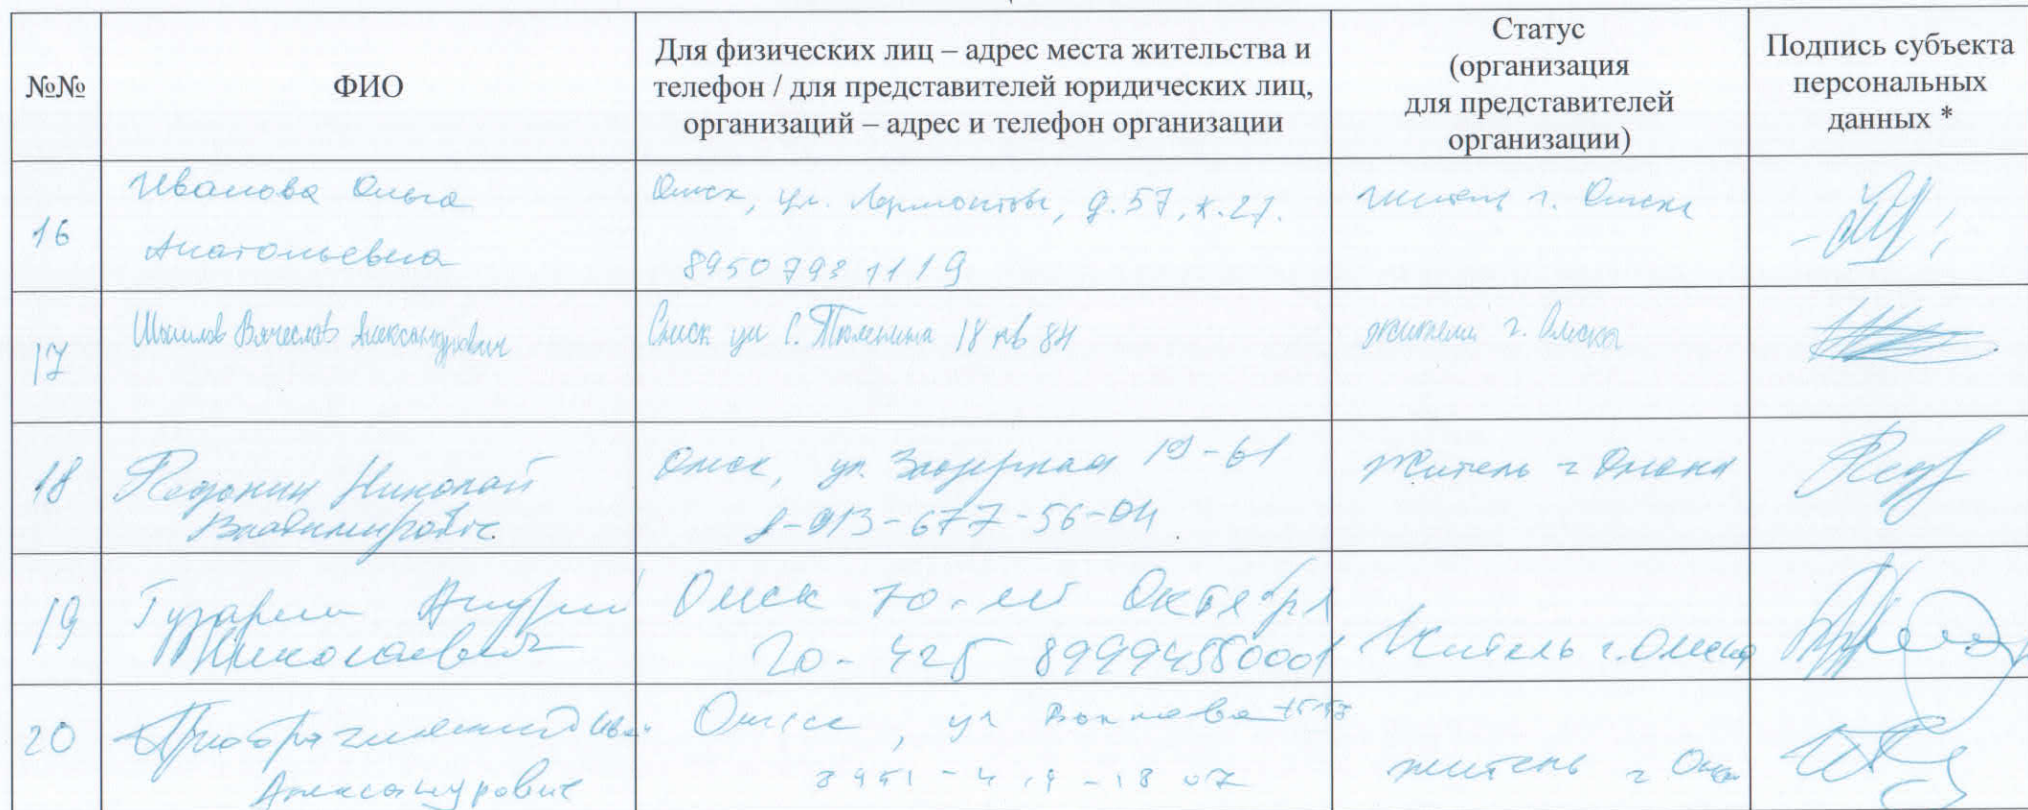 №№
ФИО
Для физических лиц – адрес места жительства и
телефон / для представителей юридических лиц,
организаций – адрес и телефон организации
Статус
(организация
для представителей
организации)
Подпись субъекта
персональных
данных *
16
Иванова Ольга
Анатольевна
Омск, ул. Лермонтова, д.57, к.27.
89507931119
житель г. Омска
17
Вячеслав Александрович
Омск ул С. Тюленина 18 кв 84
житель г Омска
18
Федонин Николай
Владимирович
Омск, ул. 19-61
8-913-677-56-04
Житель г Омска
19
Андрей
Николаевич
Омск 70-лет Октября
20-425 89994550001
Житель г. Омска
20
Александрович
Омск, ул
житель г Омс